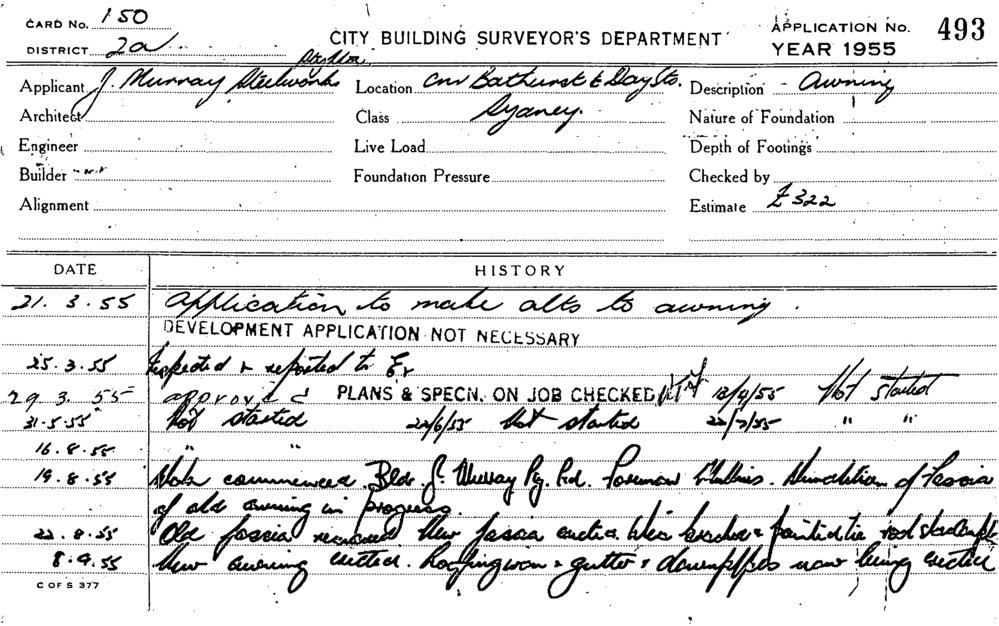 CARD No. 150
DISTRICT 2a
CITY BUILDING SURVEYOR'S DEPARTMENT
APPLICATION No. 493
YEAR 1955
Applicant J. Murray Steelworks
Location Cnr Bathurst & Day Sts.
Description Awning
Architect
Class Sydney.
Nature of Foundation
Engineer
Live Load
Depth of Footings
Builder
Foundation Pressure
Checked by
Alignment
Estimate £322
DATE HISTORY
21.3.55 Application to make alts to awning.
DEVELOPMENT APPLICATION NOT NECESSARY
25.3.55 Inspected & reported to
29.3.55 approved PLANS & SPECN. ON JOB CHECKED 13/4/55 Not started
31.5.55 Not started 22/6/55 Not started 22/7/55 " "
16.8.55 " "
19.8.55 Work commenced. Bldr. J. Murray Pty. Ltd. Foreman Demolition of Fascia
of old awning in progress.
22.8.55 Old fascia removed New fascia erected
8.9.55 New awning erected. Roofing iron & gutter & downpipes now being erected
C OF S 377